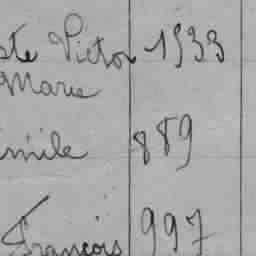 ste Victor 1933
Marie
imile 889
François 997